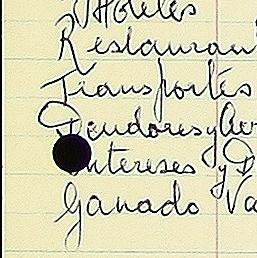 Hoteles
Restauran
Transportes
Deudores y Acr
Intereses y D
Ganado Va